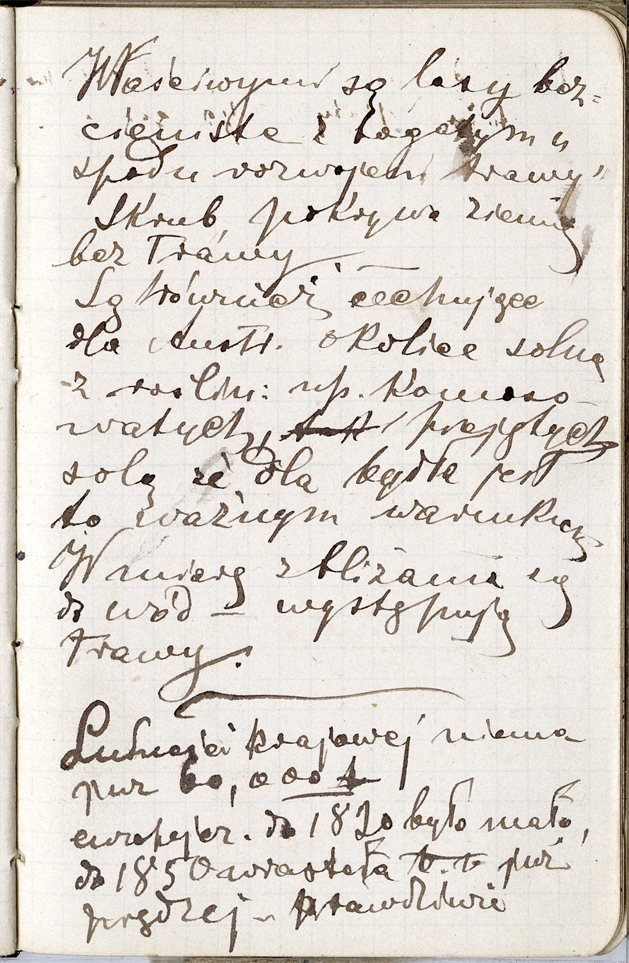 Właściwymi są lasy bez=
cieniste z bogatym u
spodu rozwojem trawy"
Skrub pokrywa ziemię
bez Trawy
Są również cechujące
dla Austr. okolice solne
z roślin: np. Komoso-
watych, i przejętych
solą że dla bydła jest
to ważnym warunkiem
W miarę zbliżania się
do wód – występują
trawy.
Ludności krajowej niema
już 60,000
europejcz. do 1820 było mało,
do 1850 wzrastała już
prędzej – prawdziwie